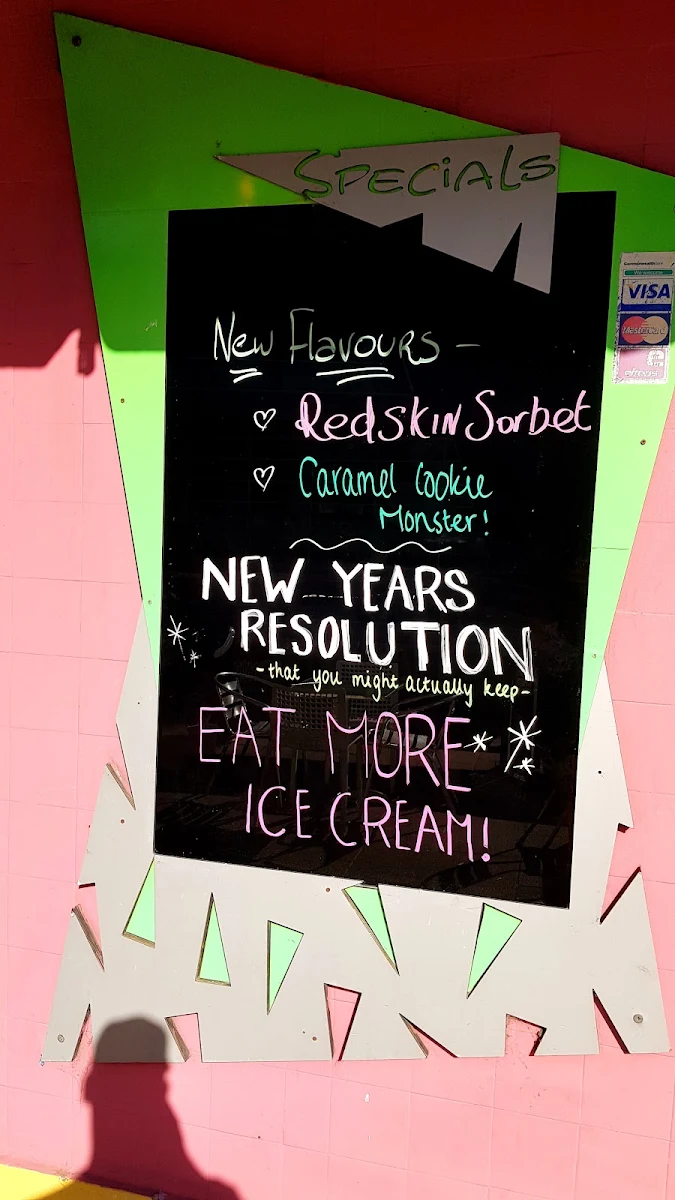 SPECiALS
New Flavours -
♡ Redskin Sorbet
♡ Caramel Cookie
Monster!
NEW YEARS
RESOLUTION
-that you might actually keep-
EAT MORE
ICE CREAM!
CommonwealthBank
We welcome
VISA
MasterCard
eftpos